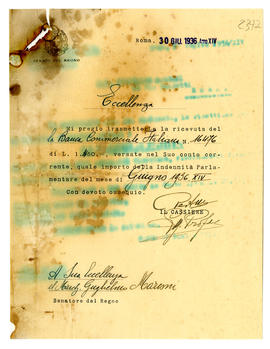 2372
SENATO DEL REGNO
Roma, 30 GIU. 1936 Anno XIV
Eccellenza
Mi pregio trasmetterLe la ricevuta del
la Banca Commerciale Italiana N. 16476
di L. versate nel Suo conto cor-
rente, quale importo della Indennità Parla-
mentare del mese di Giugno 1936 XIV
Con devoto ossequio.
IL CASSIERE
A Sua Eccellenza
il March. Guglielmo Marconi
Senatore del Regno